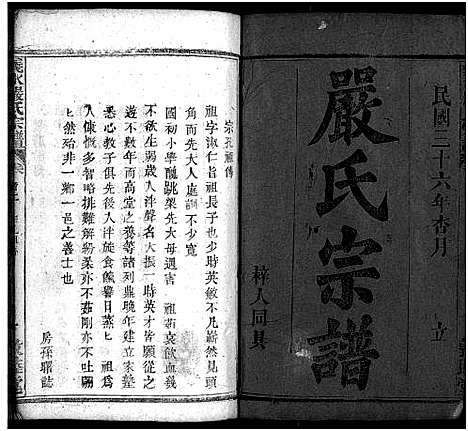 民國三十六年杏月 立
嚴氏宗譜
梓人同具
宗孔祖傳
祖字淑仁皆祖長子也少時英敏不凡嶄然見頭
角而先大人庭訓不少寬
國初小學醜跳梁先大母遇害 祖茹哀飲血幾
不欲生弱歲入泮聲名大振一時英才皆願從之
遊不數年而高堂之養等諸列鼎晚年建立家塾
悉心教子俱先後入泮旋食餼譽日蒸上 祖為
人慷慨多智略排難解紛柔亦不茹剛亦不吐囑
上然殆非一鄉一邑之善士也
房孫 誌
義水嚴氏宗譜